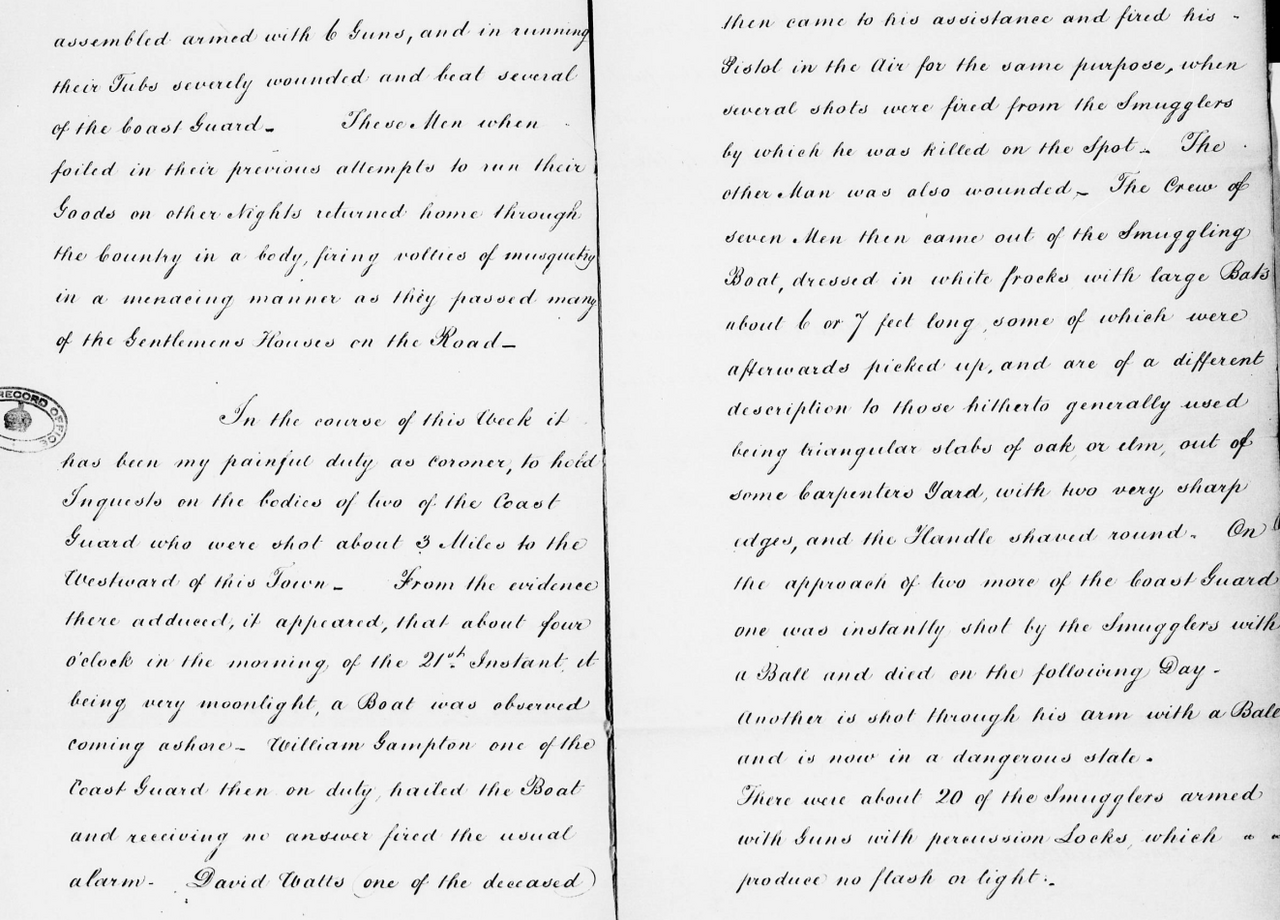 assembled armed with 6 Guns, and in running
their Tubs severely wounded and beat several
of the Coast Guard_ These Men when
foiled in their previous attempts to run their
Goods on other Nights returned home through
the Country in a body, firing vollies of musquetry
in a menacing manner as they passed many
of the Gentlemens Houses on the Road_
RECORD OFFICE
In the course of this Week it
has been my painful duty as Coroner, to hold
Inquests on the bodies of two of the Coast
Guard who were shot about 3 Miles to the
Westward of this Town_ From the evidence
there adduced, it appeared, that about four
o'clock in the morning, of the 21st Instant, it
being very moonlight, a Boat was observed
coming ashore_ William Gampton one of the
Coast Guard then on duty, hailed the Boat
and receiving no answer fired the usual
alarm- David Watts (one of the deceased)
then came to his assistance and fired his -
Pistol in the Air for the same purpose, when
several shots were fired from the Smugglers
by which he was killed on the Spot_ The
other Man was also wounded_ The Crew of
seven Men then came out of the Smuggling
Boat, dressed in white frocks with large Bats
about 6 or 7 feet long, some of which were
afterwards picked up, and are of a different
description to those hitherto generally used
being triangular slabs of oak, or elm, out of
some Carpenters Yard, with two very sharp
edges, and the Handle shaved round. On
the approach of two more of the Coast Guard
one was instantly shot by the Smugglers with
a Ball and died on the following Day-
Another is shot through his arm with a Ball
and is now in a dangerous state.
There were about 20 of the Smugglers armed
with Guns with percussion Locks, which
produce no flash or light:_